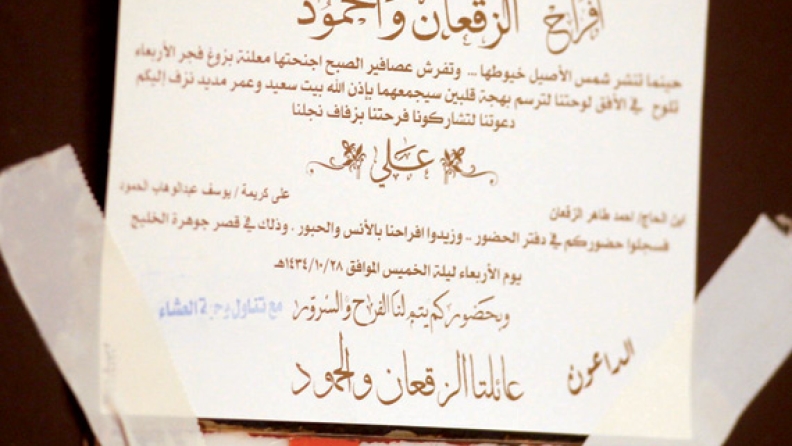 أفراح الزقعان والحمود
حينما تنشر شمس الأصيل خيوطها ... وتفرش عصافير الصبح اجنحتها معلنة بزوغ فجر الأربعاء
تلوح في الأفق لوحتنا لترسم بهجة قلبين سيجمعهما بإذن الله بيت سعيد وعمر مديد نزف إليكم
دعوتنا لتشاركونا فرحتنا بزفاف نجلنا
علي
ابن الحاج/ احمد طاهر الزقعان على كريمة / يوسف عبدالوهاب الحمود
فسجلوا حضوركم في دفتر الحضور .. وزيدوا افراحنا بالأنس والحبور . وذلك في قصر جوهرة الخليج
يوم الأربعاء ليلة الخميس الموافق ١٤٣٤/١٠/٢٨هـ
وبحضوركم يتم لنا الفرح والسرور مع تناول العشاء
الداعون
عائلتا الزقعان والحمود